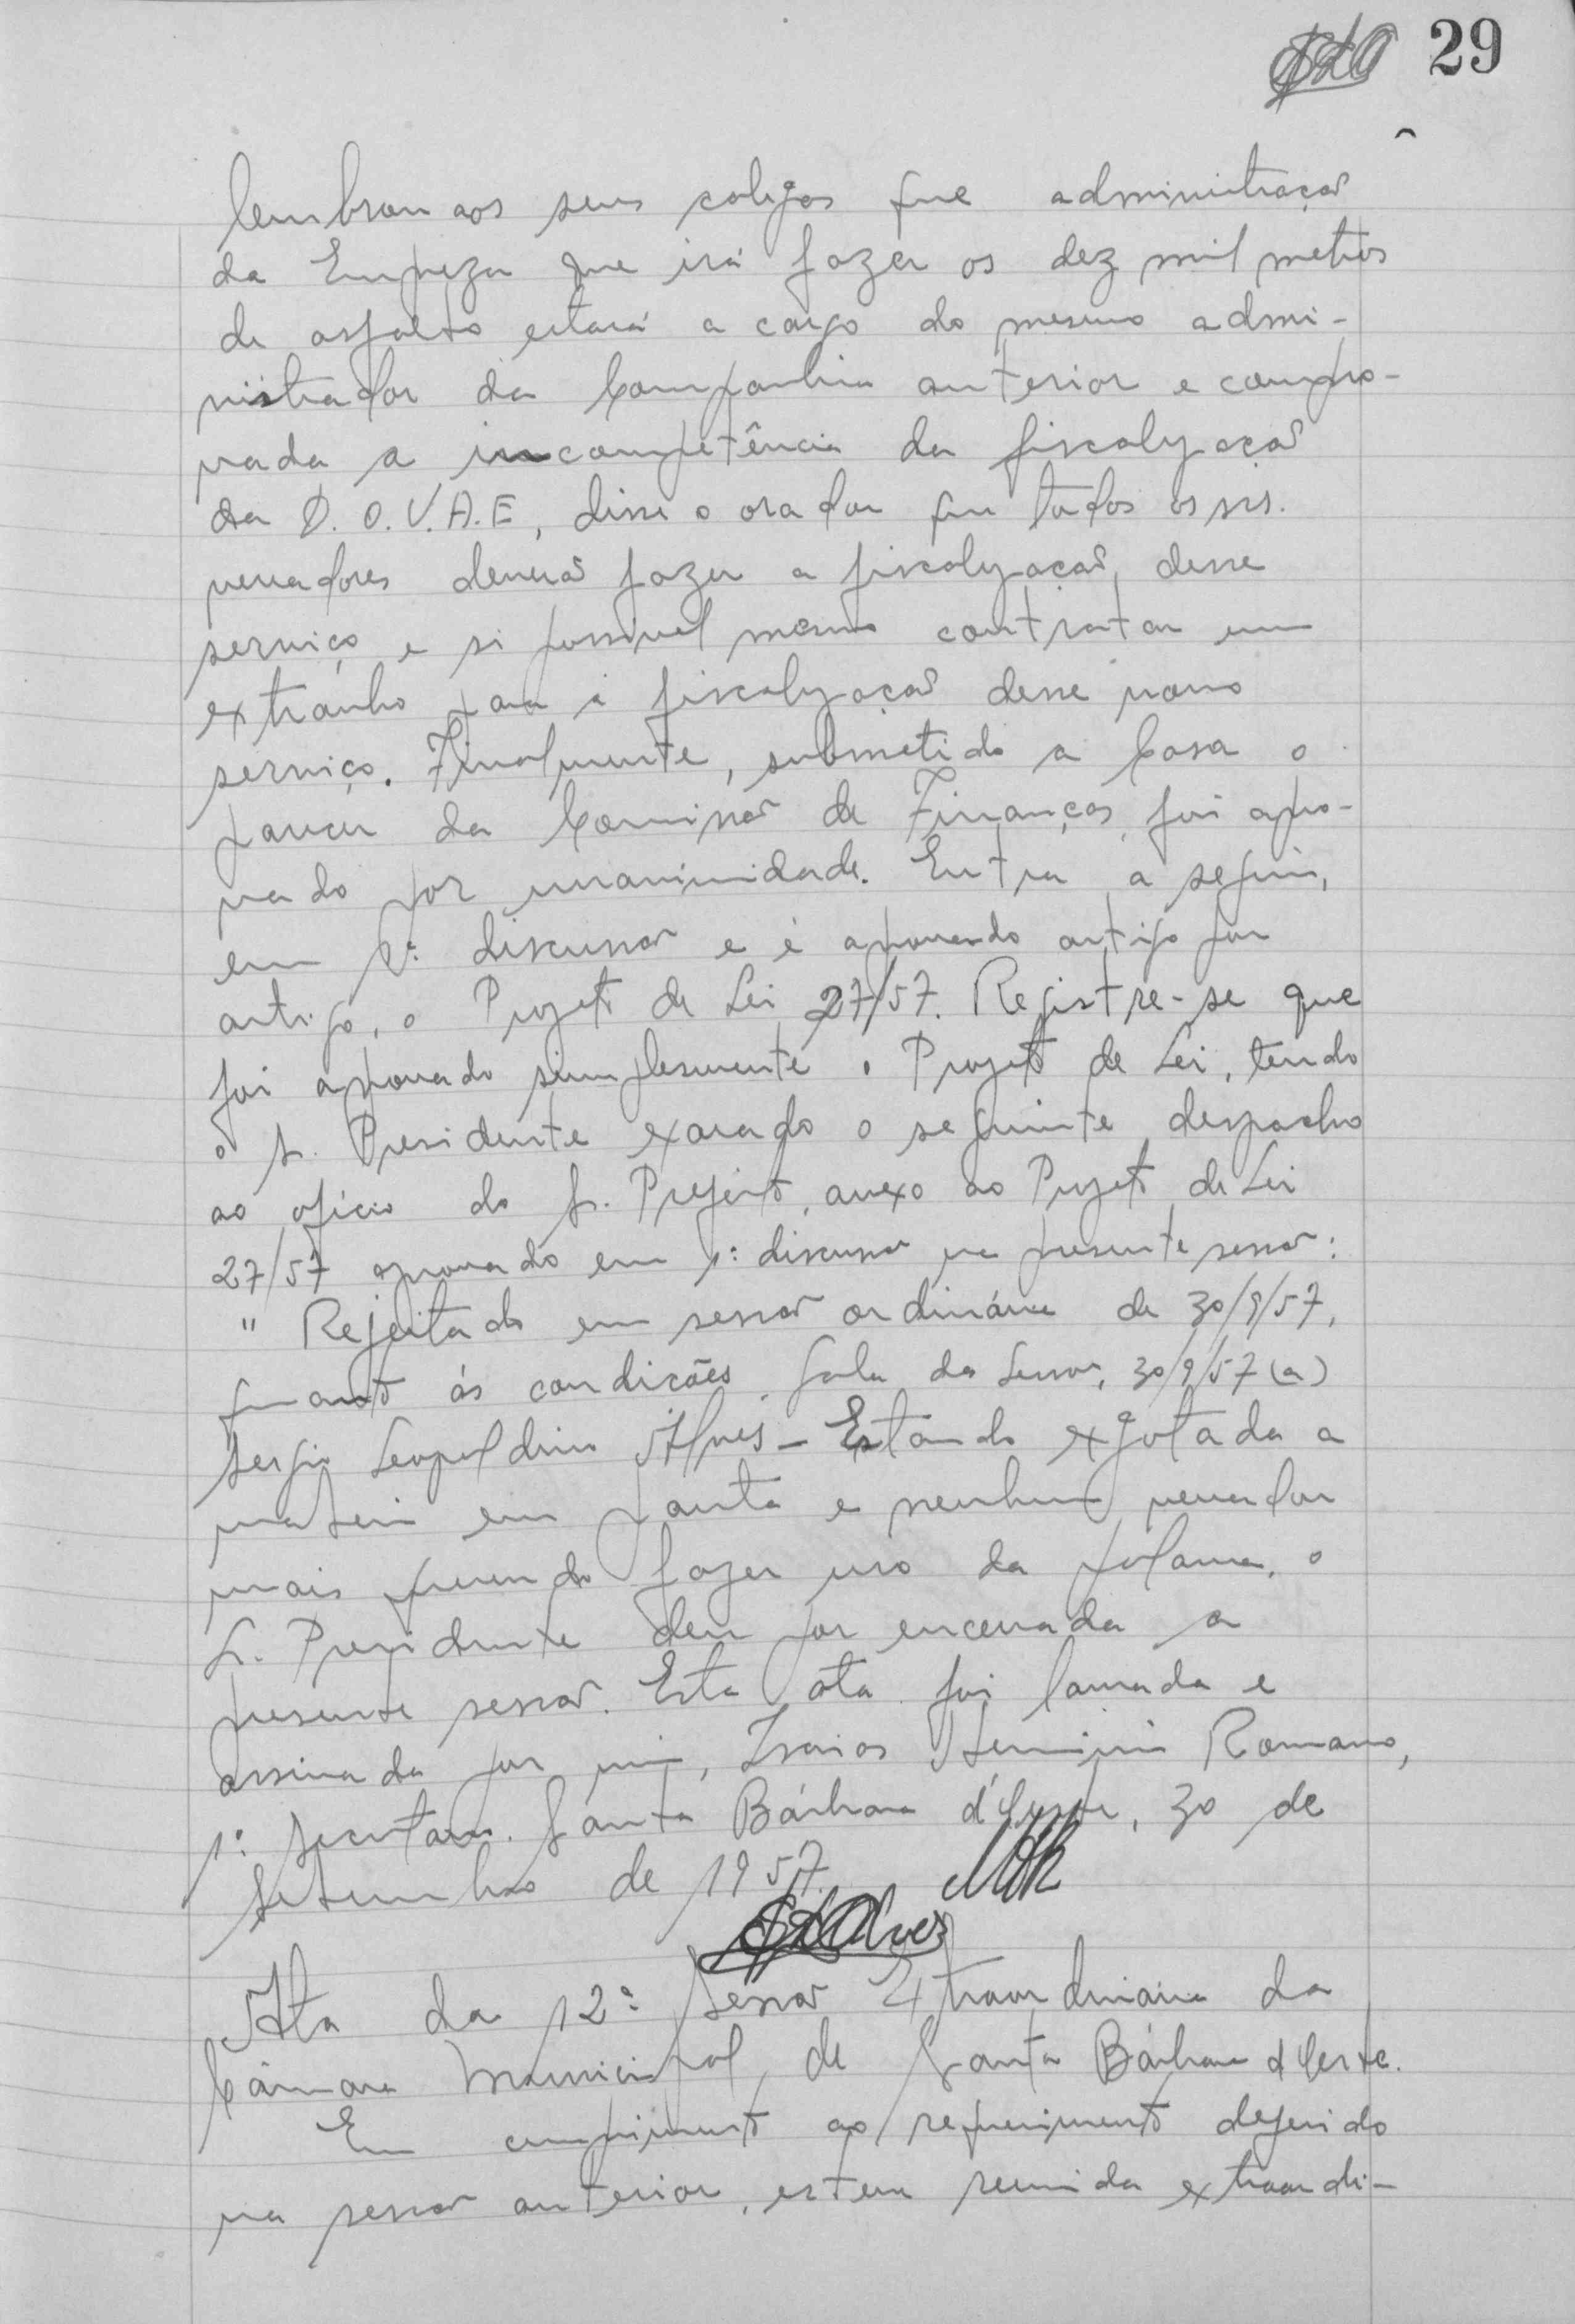 29
lembrou aos seus colegas que administração
da Empreza que irá fazer os dez mil metros
de asfalto estará a cargo do mesmo admi-
nistrador da Companhia anterior e compro-
vada a incompetência da fiscalyzação
da D.O.V.A.E, disse o orador que todos os srs.
vereadores deverão fazer a fiscalyzação desse
serviço e si possivel mesmo contratar um
extranho para a fiscalyzação desse novo
serviço. Finalmente, submetido a Casa o
parecer da Comissão de Finanças, foi apro-
vado por unanimidade. Entra, a seguir,
em 1ª discussão e é aprovado artigo por
artigo, o Projeto de Lei 27/57. Registre-se que
foi aprovado simplesmente o Projeto de Lei, tendo
o Sr. Presidente exarado o seguinte despacho
ao oficio do Sr. Prefeito, anexo ao Projeto de Lei
27/57 aprovado em 1ª discussão na presente sessão:
" Rejeitado em sessão ordinária de 30/9/57,
quanto ás condições. Sala das Sessões, 30/9/57 (a)
Sergio Leopoldino Alves - Estando exgotada a
materia em pauta e nenhum vereador
mais querendo fazer uso da palavra, o
Sr. Presidente deu por encerrada a
presente sessão. Esta ata foi lavrada e
assinada por mim, Isaias Herminio Romano,
1º Secretario. Santa Bárbara d'Oeste, 30 de
Setembro de 1957.
Ata da 12ª Sessão Extraordinária da
Câmara Municipal de Santa Bárbara d'Oeste.
Em cumprimento ao requerimento deferido
na sessão anterior, esteve reunida extraordi-